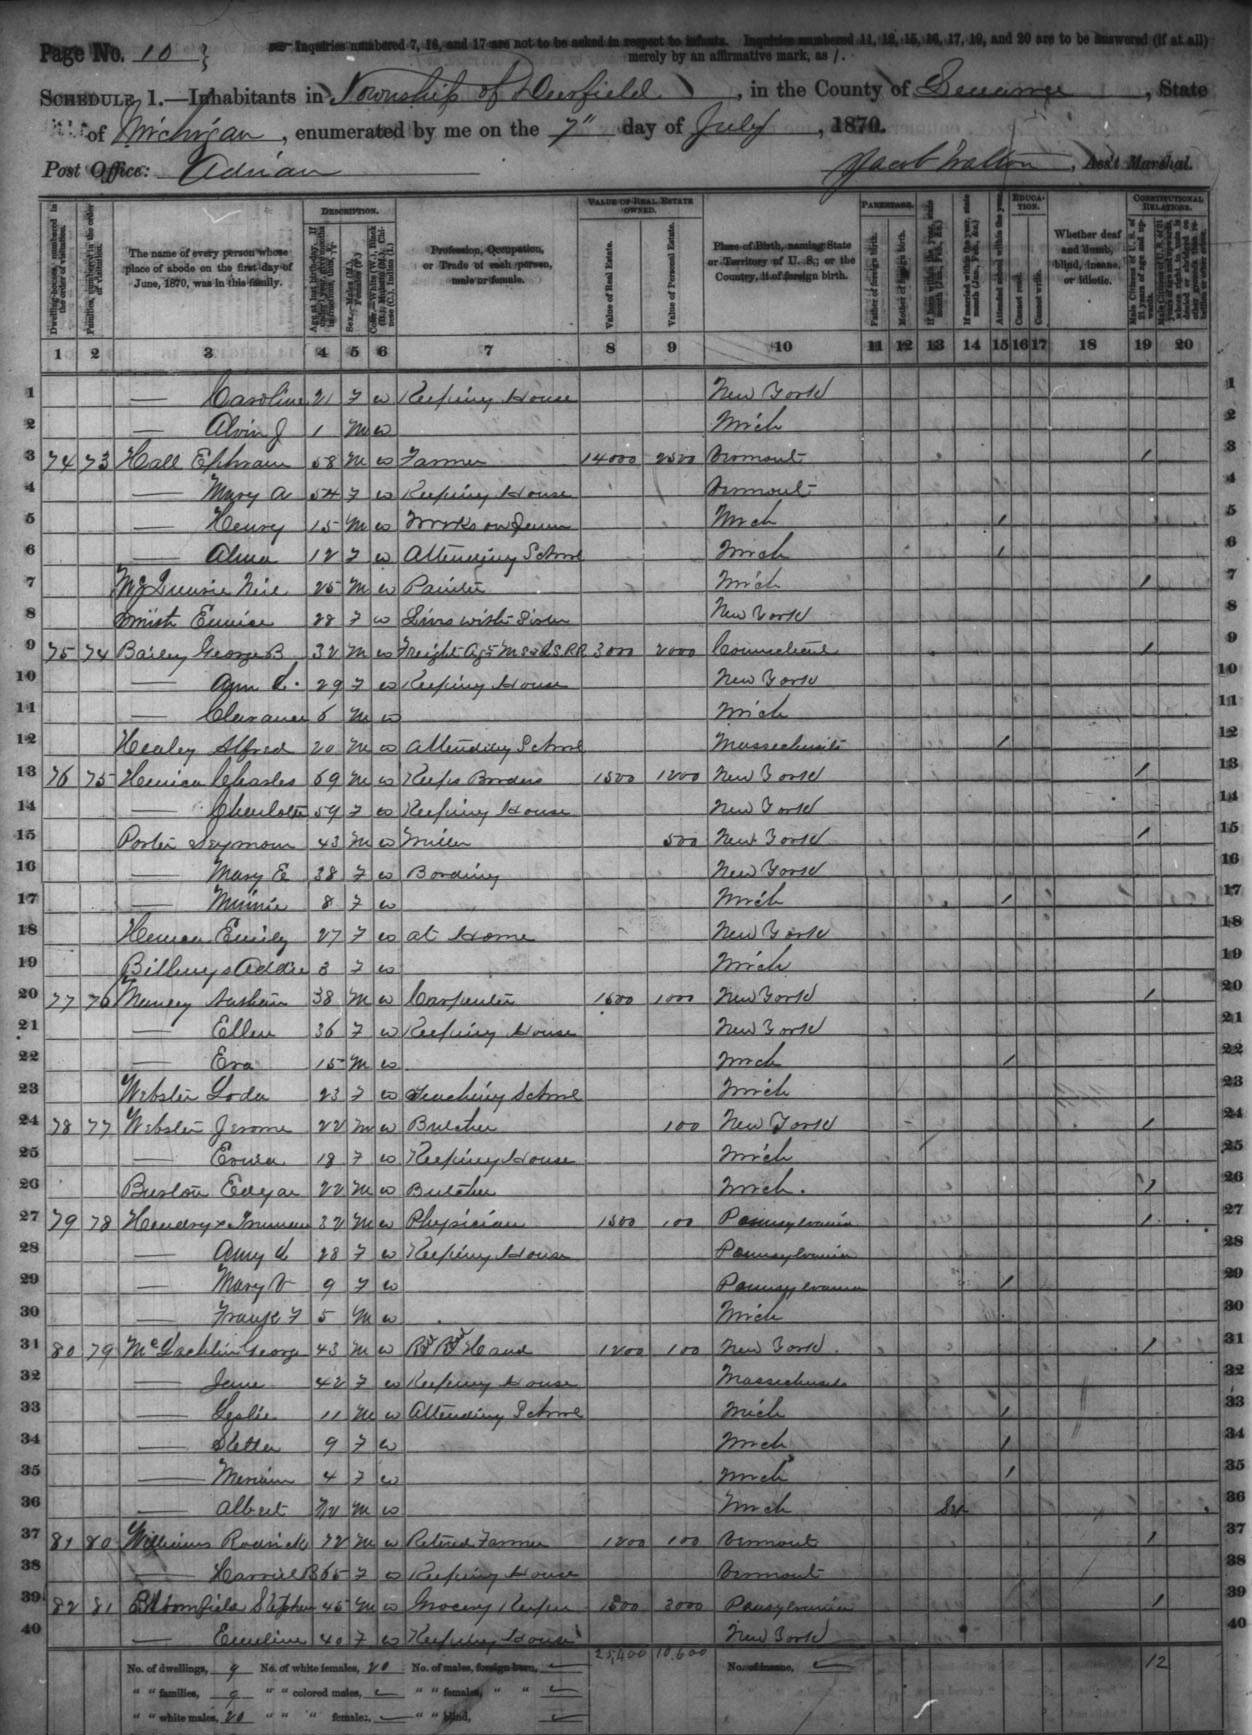 Page No. 10
Inquiries numbered 7, 16, and 17 are not to be asked in respect to infants. Inquiries numbered 11, 12, 15, 16, 17, 19, and 20 are to be answered (if at all)
merely by an affirmative mark, as /.
SCHEDULE 1.—Inhabitants in Township of Deerfield, in the County of Lenawee, State
of Michigan, enumerated by me on the 7" day of July, 1870.
Post Office: Adrian Jacob Walton, Ass't Marshal.
DESCRIPTION. VALUE OF REAL ESTATE OWNED. PARENTAGE. EDUCATION. CONSTITUTIONAL RELATIONS.
Dwelling-houses, numbered in the order of visitation.
Families, numbered in the order of visitation.
The name of every person whose place of abode on the first day of June, 1870, was in this family.
Sex.—Males (M.), Females (F.)
Profession, Occupation, or Trade of each person, male or female.
Value of Real Estate.
Value of Personal Estate.
Place of Birth, naming State or Territory of U. S.; or the Country, if of foreign birth.
Father of foreign birth.
Mother of foreign birth.
Attended school within the year.
Cannot read.
Cannot write.
Whether deaf and dumb, blind, insane, or idiotic.
1 2 3 4 5 6 7 8 9 10 11 12 13 14 15 16 17 18 19 20
1 — Caroline 21 F W Keeping House New York 1
2 — Alvin J 1 M W Mich 2
3 74 73 Hall Ephraim 58 M W Farmer 14000 2500 Vermont / 3
4 — Mary A 54 F W Keeping House Vermont 4
5 — Henry 15 M W Works on Farm Mich / 5
6 — Alma 12 F W Attending School Mich / 6
7 25 M W Painter Mich / 7
8 Smith Eunice 28 F W Lives with Sister New York 8
9 75 74 Bailey George B 32 M W Freight Agt M S & L S RR 3000 2000 Connecticut / 9
10 — Ann L. 29 F W Keeping House New York 10
11 — Clarance 6 M W Mich 11
12 Healey Alfred 20 M W Attending School Massechusits / 12
13 76 75 Charles 69 M W Keeps Borders 1500 1200 New York / 13
14 — Charlotte 59 F W Keeping House New York 14
15 Porter Seymour 43 M W Miller 500 New York / 15
16 — Mary E 38 F W Bording New York 16
17 — Minnie 8 F W Mich / 17
18 Emily 27 F W at Home New York 18
19 Billings Addie 3 F W Mich 19
20 77 76 38 M W Carpenter 1600 1000 New York / 20
21 — Ellen 36 F W Keeping House New York 21
22 — Eva 15 M W Mich / 22
23 Webster 23 F W Teaching School Mich 23
24 78 77 Webster Jerome 22 M W Butcher 100 New York / 24
25 — 18 F W Keeping House Mich 25
26 Edgar 22 M W Butcher Mich. / 26
27 79 78 Hendryx Truman 32 M W Physician 1500 100 Pennsylvania / 27
28 — Amy L 28 F W Keeping House Pennsylvania 28
29 — Mary V 9 F W Pennsylvania / 29
30 — Frank F 5 M W Mich 30
31 80 79 McLachlin George 43 M W Rd Rd Hand 1200 100 New York / 31
32 — Jane 42 F W Keeping House Massechusets 32
33 — Leslie 11 M W Attending School Mich / 33
34 — 9 F W Mich / 34
35 — Meriam 4 F W Mich / 35
36 — Albert M W Mich 36
37 81 80 Williams Rodrick 72 M W Retired Farmer 1200 100 Vermont / 37
38 — Harriel B 65 F W Keeping House Vermont 38
39 82 81 Bloomfield Stephen 45 M W Grocery Keeper 1500 3000 Pensylvania / 39
40 — Emeline 40 F W Keeping House New York 40
25,400 10,600 12
No. of dwellings, 9 No. of white females, 20 No. of males, foreign born, No. of insane,
" " families, 9 " " colored males, " " females, " "
" " white males, 20 " " " females, " " blind,